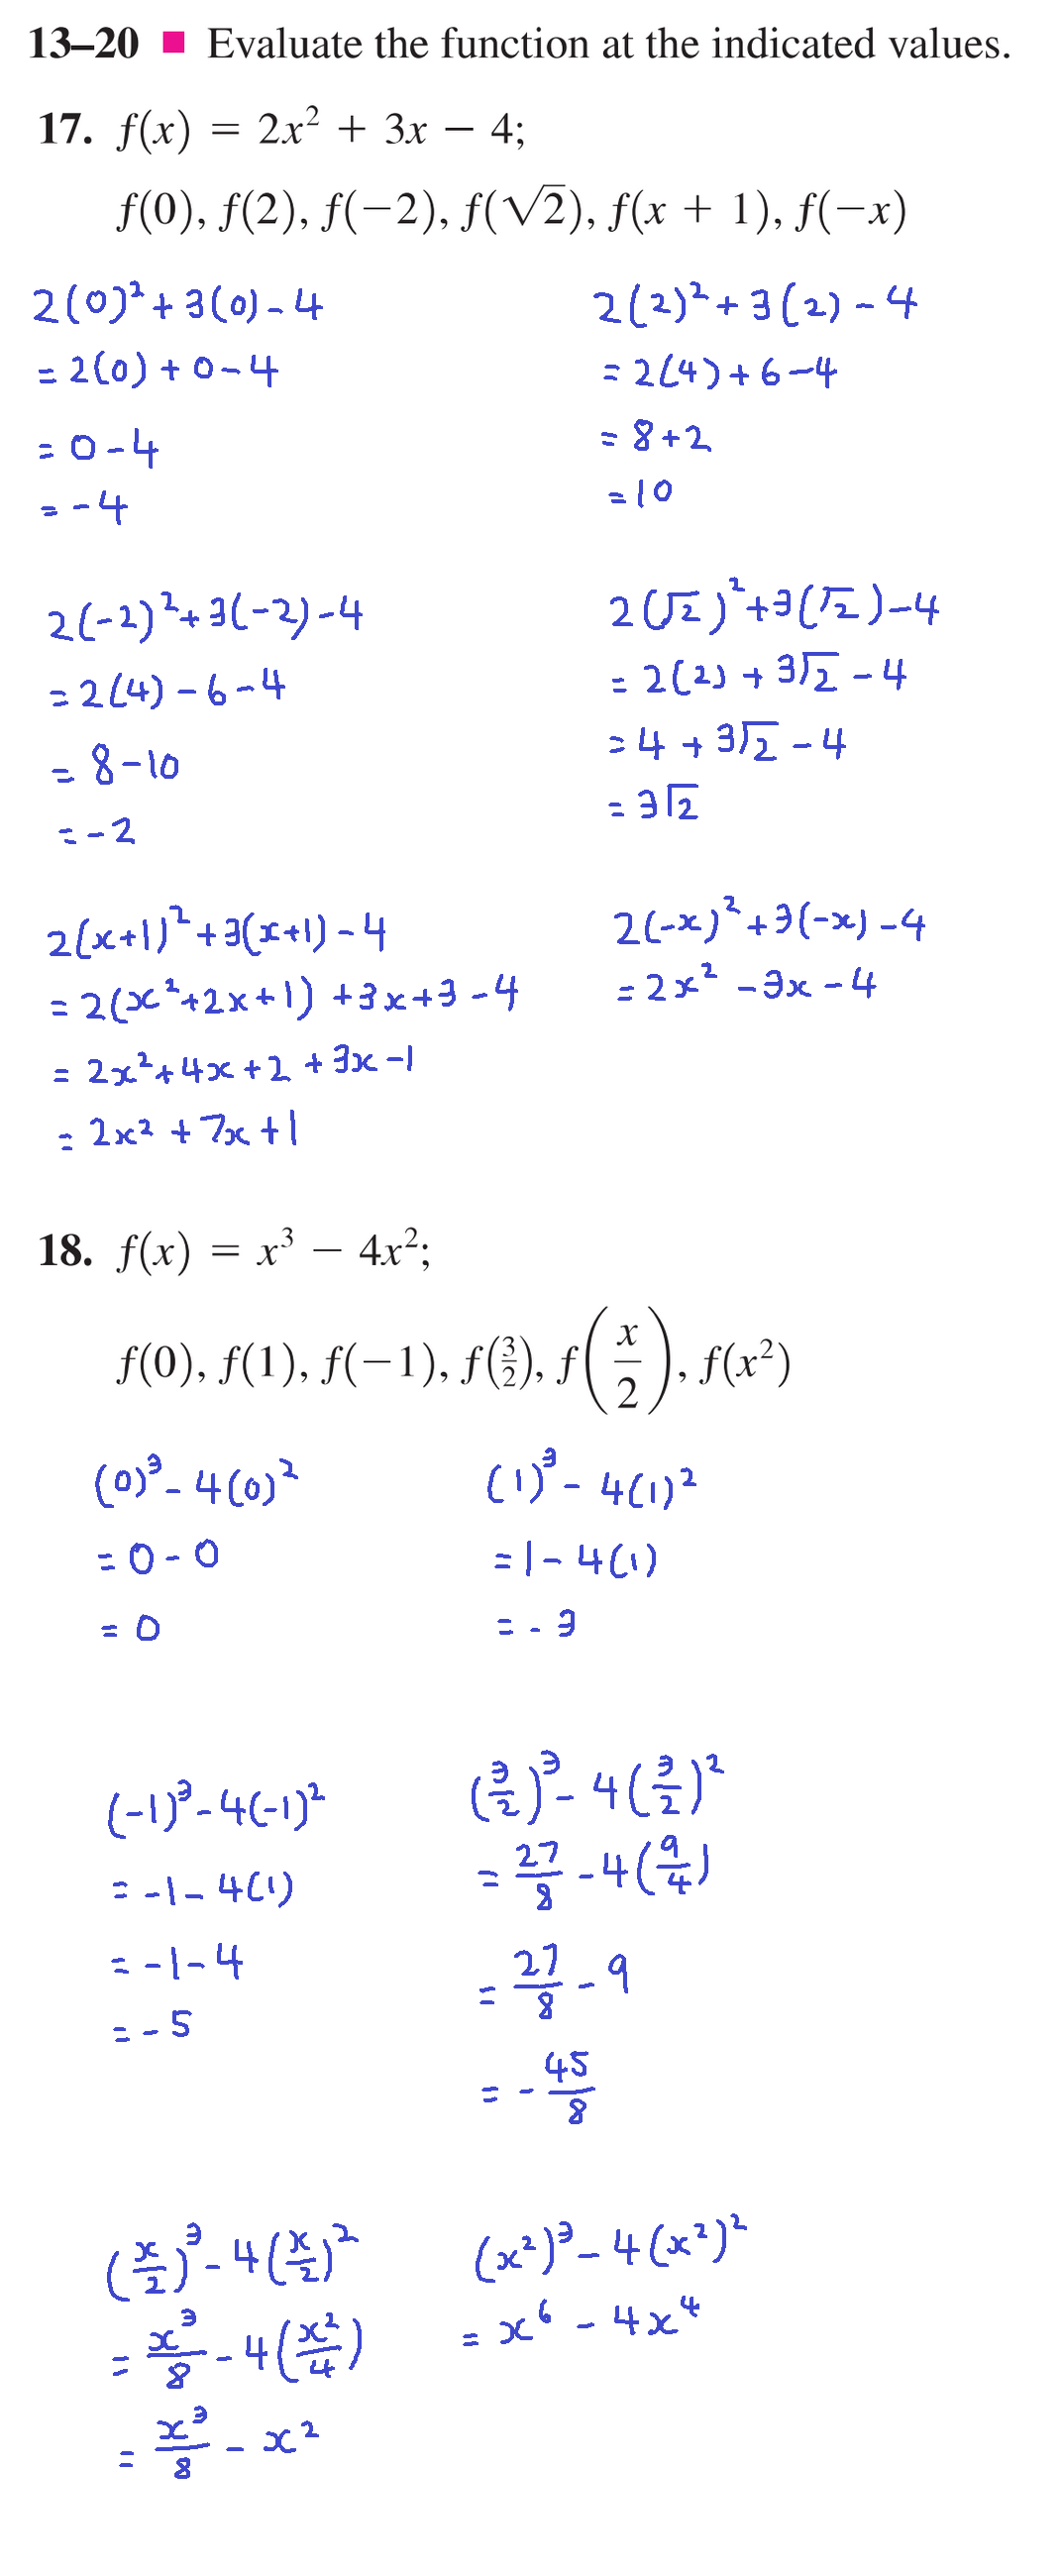 13–20 ■ Evaluate the function at the indicated values.
17. f(x) = 2x² + 3x − 4;
f(0), f(2), f(−2), f(√2), f(x + 1), f(−x)
2(0)² + 3(0) - 4
= 2(0) + 0 - 4
= 0 - 4
= -4
2(2)² + 3(2) - 4
= 2(4) + 6 - 4
= 8 + 2
= 10
2(-2)² + 3(-2) - 4
= 2(4) - 6 - 4
= 8 - 10
= -2
2(√2)² + 3(√2) - 4
= 2(2) + 3√2 - 4
= 4 + 3√2 - 4
= 3√2
2(x+1)² + 3(x+1) - 4
= 2(x² + 2x + 1) + 3x + 3 - 4
= 2x² + 4x + 2 + 3x - 1
= 2x² + 7x + 1
2(-x)² + 3(-x) - 4
= 2x² - 3x - 4
18. f(x) = x³ − 4x²;
f(0), f(1), f(−1), f(3/2), f(x/2), f(x²)
(0)³ - 4(0)²
= 0 - 0
= 0
(1)³ - 4(1)²
= 1 - 4(1)
= -3
(-1)³ - 4(-1)²
= -1 - 4(1)
= -1 - 4
= -5
(3/2)³ - 4(3/2)²
= 27/8 - 4(9/4)
= 27/8 - 9
= -45/8
(x/2)³ - 4(x/2)²
= x³/8 - 4(x²/4)
= x³/8 - x²
(x²)³ - 4(x²)²
= x⁶ - 4x⁴